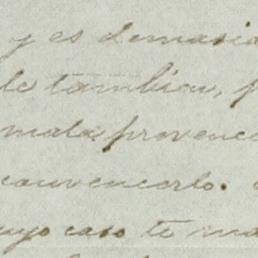 y es demasia
le tambien, p
mala provenec
convencerlo.
uyo caso te ma